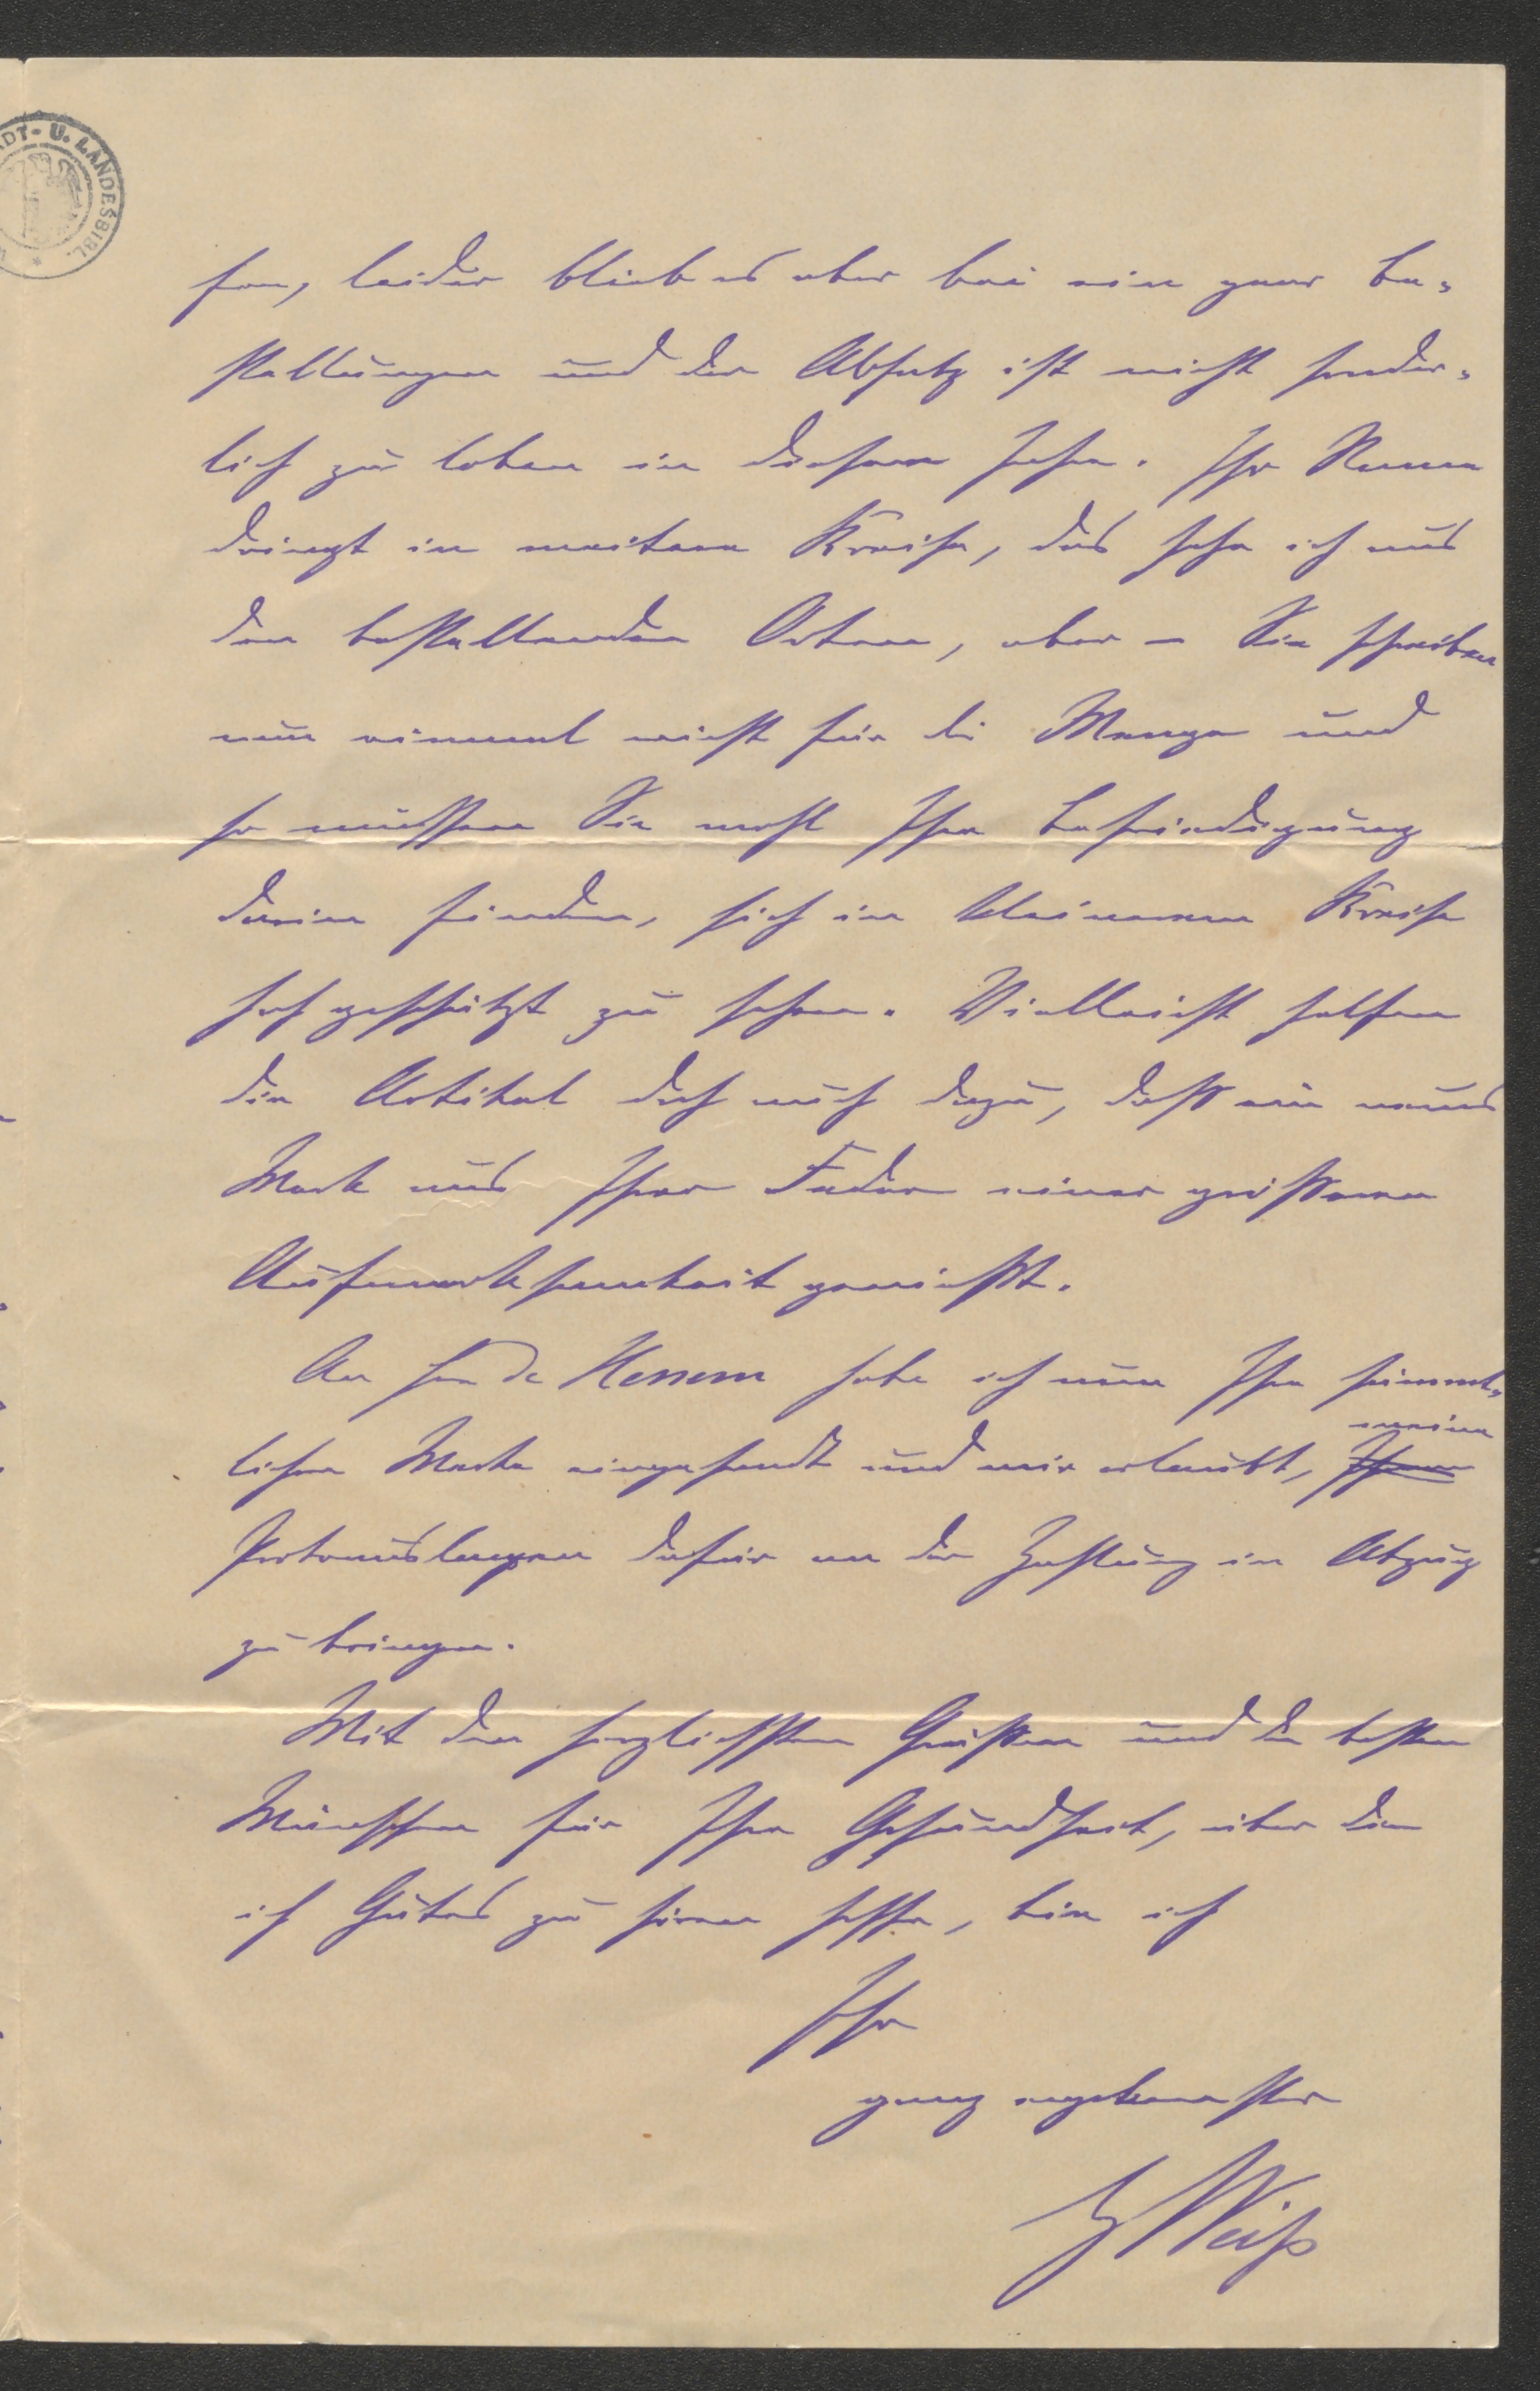 ADT- U. LANDESBIBL.
hen, leider blieb es aber bei ein paar Be-
stellungen und der Absatz ist nicht sonder-
lich zu loben in diesem Jahre. Ihr Name
dringt in weitere Kreise, das sehe ich aus
den bestellenden Orten, aber – Sie schreiben
nun einmal nicht für die Menge und
so müssen Sie wohl Ihre Befriedigung
darin finden, sich in kleineren Kreise
hoch geschätzt zu sehen. Vielleicht helfen
die Artikel doch auch dazu, dass ein neues
Werk aus Ihrer Feder einer grösseren
Aufmerksamkeit gewiss ist.
An de habe ich nun Ihre sämmt-
lichen Werke eingesandt und mir erlaubt, Ihnen meine
Portoauslagen dafür an der Zahlung in Abzug
zu bringen.
Mit den herzlichsten Grüssen und den besten
Wünschen für Ihre Gesundheit, über die
ich Gutes zu hören hoffe, bin ich
Ihr
ganz ergebenster
Weiß